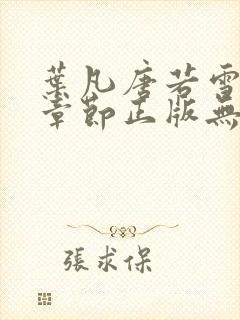 葉凡唐若雪
章節正版無
張求保